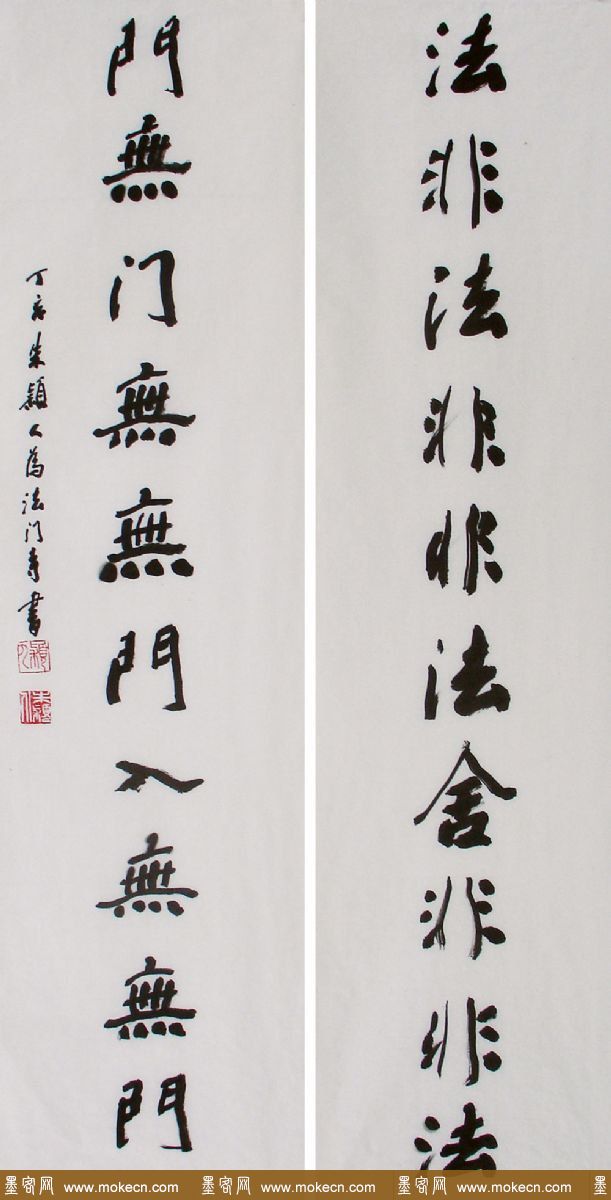 法非法非非法舍非非法
門無门無無門入無無門
丁亥朱穎人為法门寺書
墨客网 www.mokecn.com 墨客网 www.mokecn.com 墨客网 www.mokecn.com